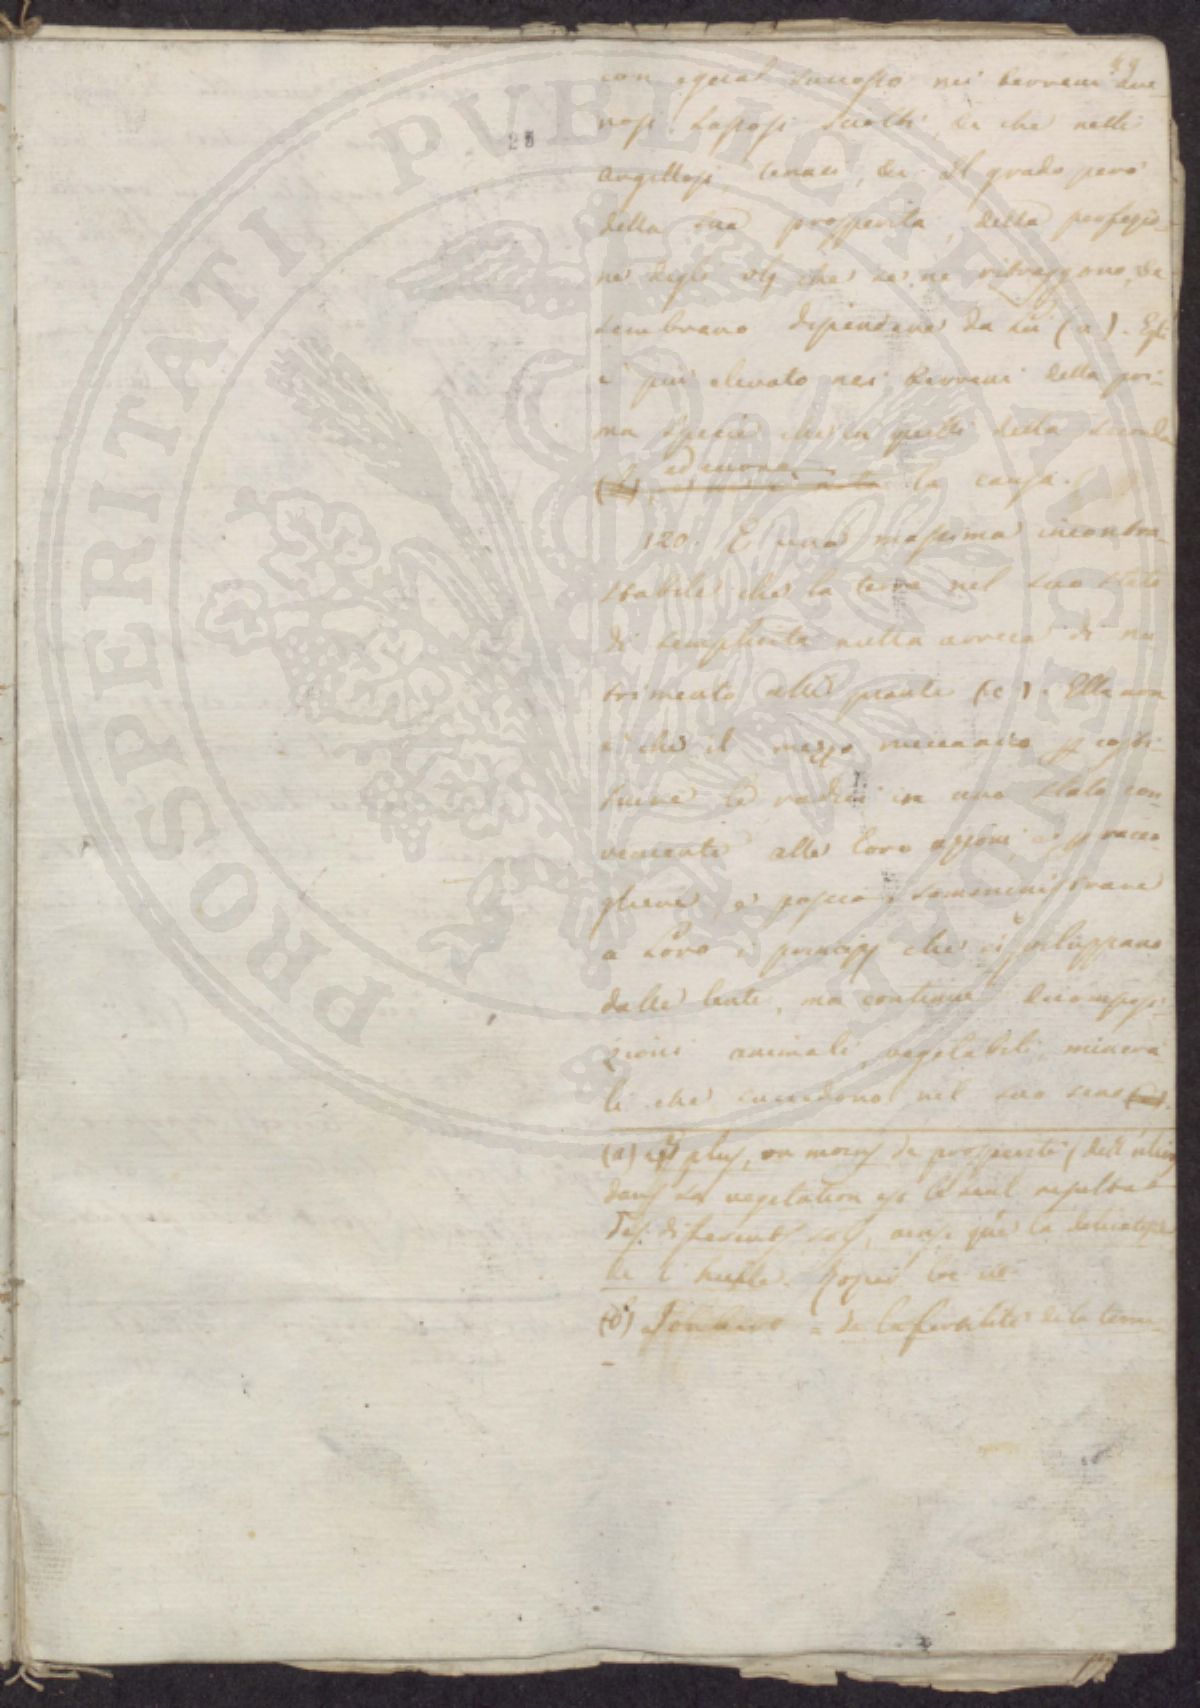 49
con egual successo nei terreni are-
nosi, sassosi sciolti, &c che nelli
argillosi, tenaci, &c. Il grado però
della sua prosperità, della perfezio-
ne degli olj che se ne ritraggono, &c
sembrano dipendere da lui (a). Egli
è più elevato nei terreni della pri-
ma specie che in quelli della seconda
ed eccone
(b), la causa.
120. È una massima incontra-
stabile che la terra nel suo stato
di semplicità nulla arreca di nu-
trimento alle piante (c). Ella non
è che il mezzo meccanico per costi-
tuire le radici in uno stato con-
veniente alle loro azioni, e per racco-
gliere, e poscia somministrare
a loro i principj che si sviluppano
dalle lente, ma continue decomposi-
zioni animali, vegetabili, minera-
li che succedono nel suo seno
(a) plus, ou moins de prosperité
dans la vegetation est le seul resultat
des differents sols, ainsi que la delicatesse
de l'huile. Rozier loc cit
(b) = de la fertilité de la terre
23
PROSPERITATI PUBLICAE AUGENDAE